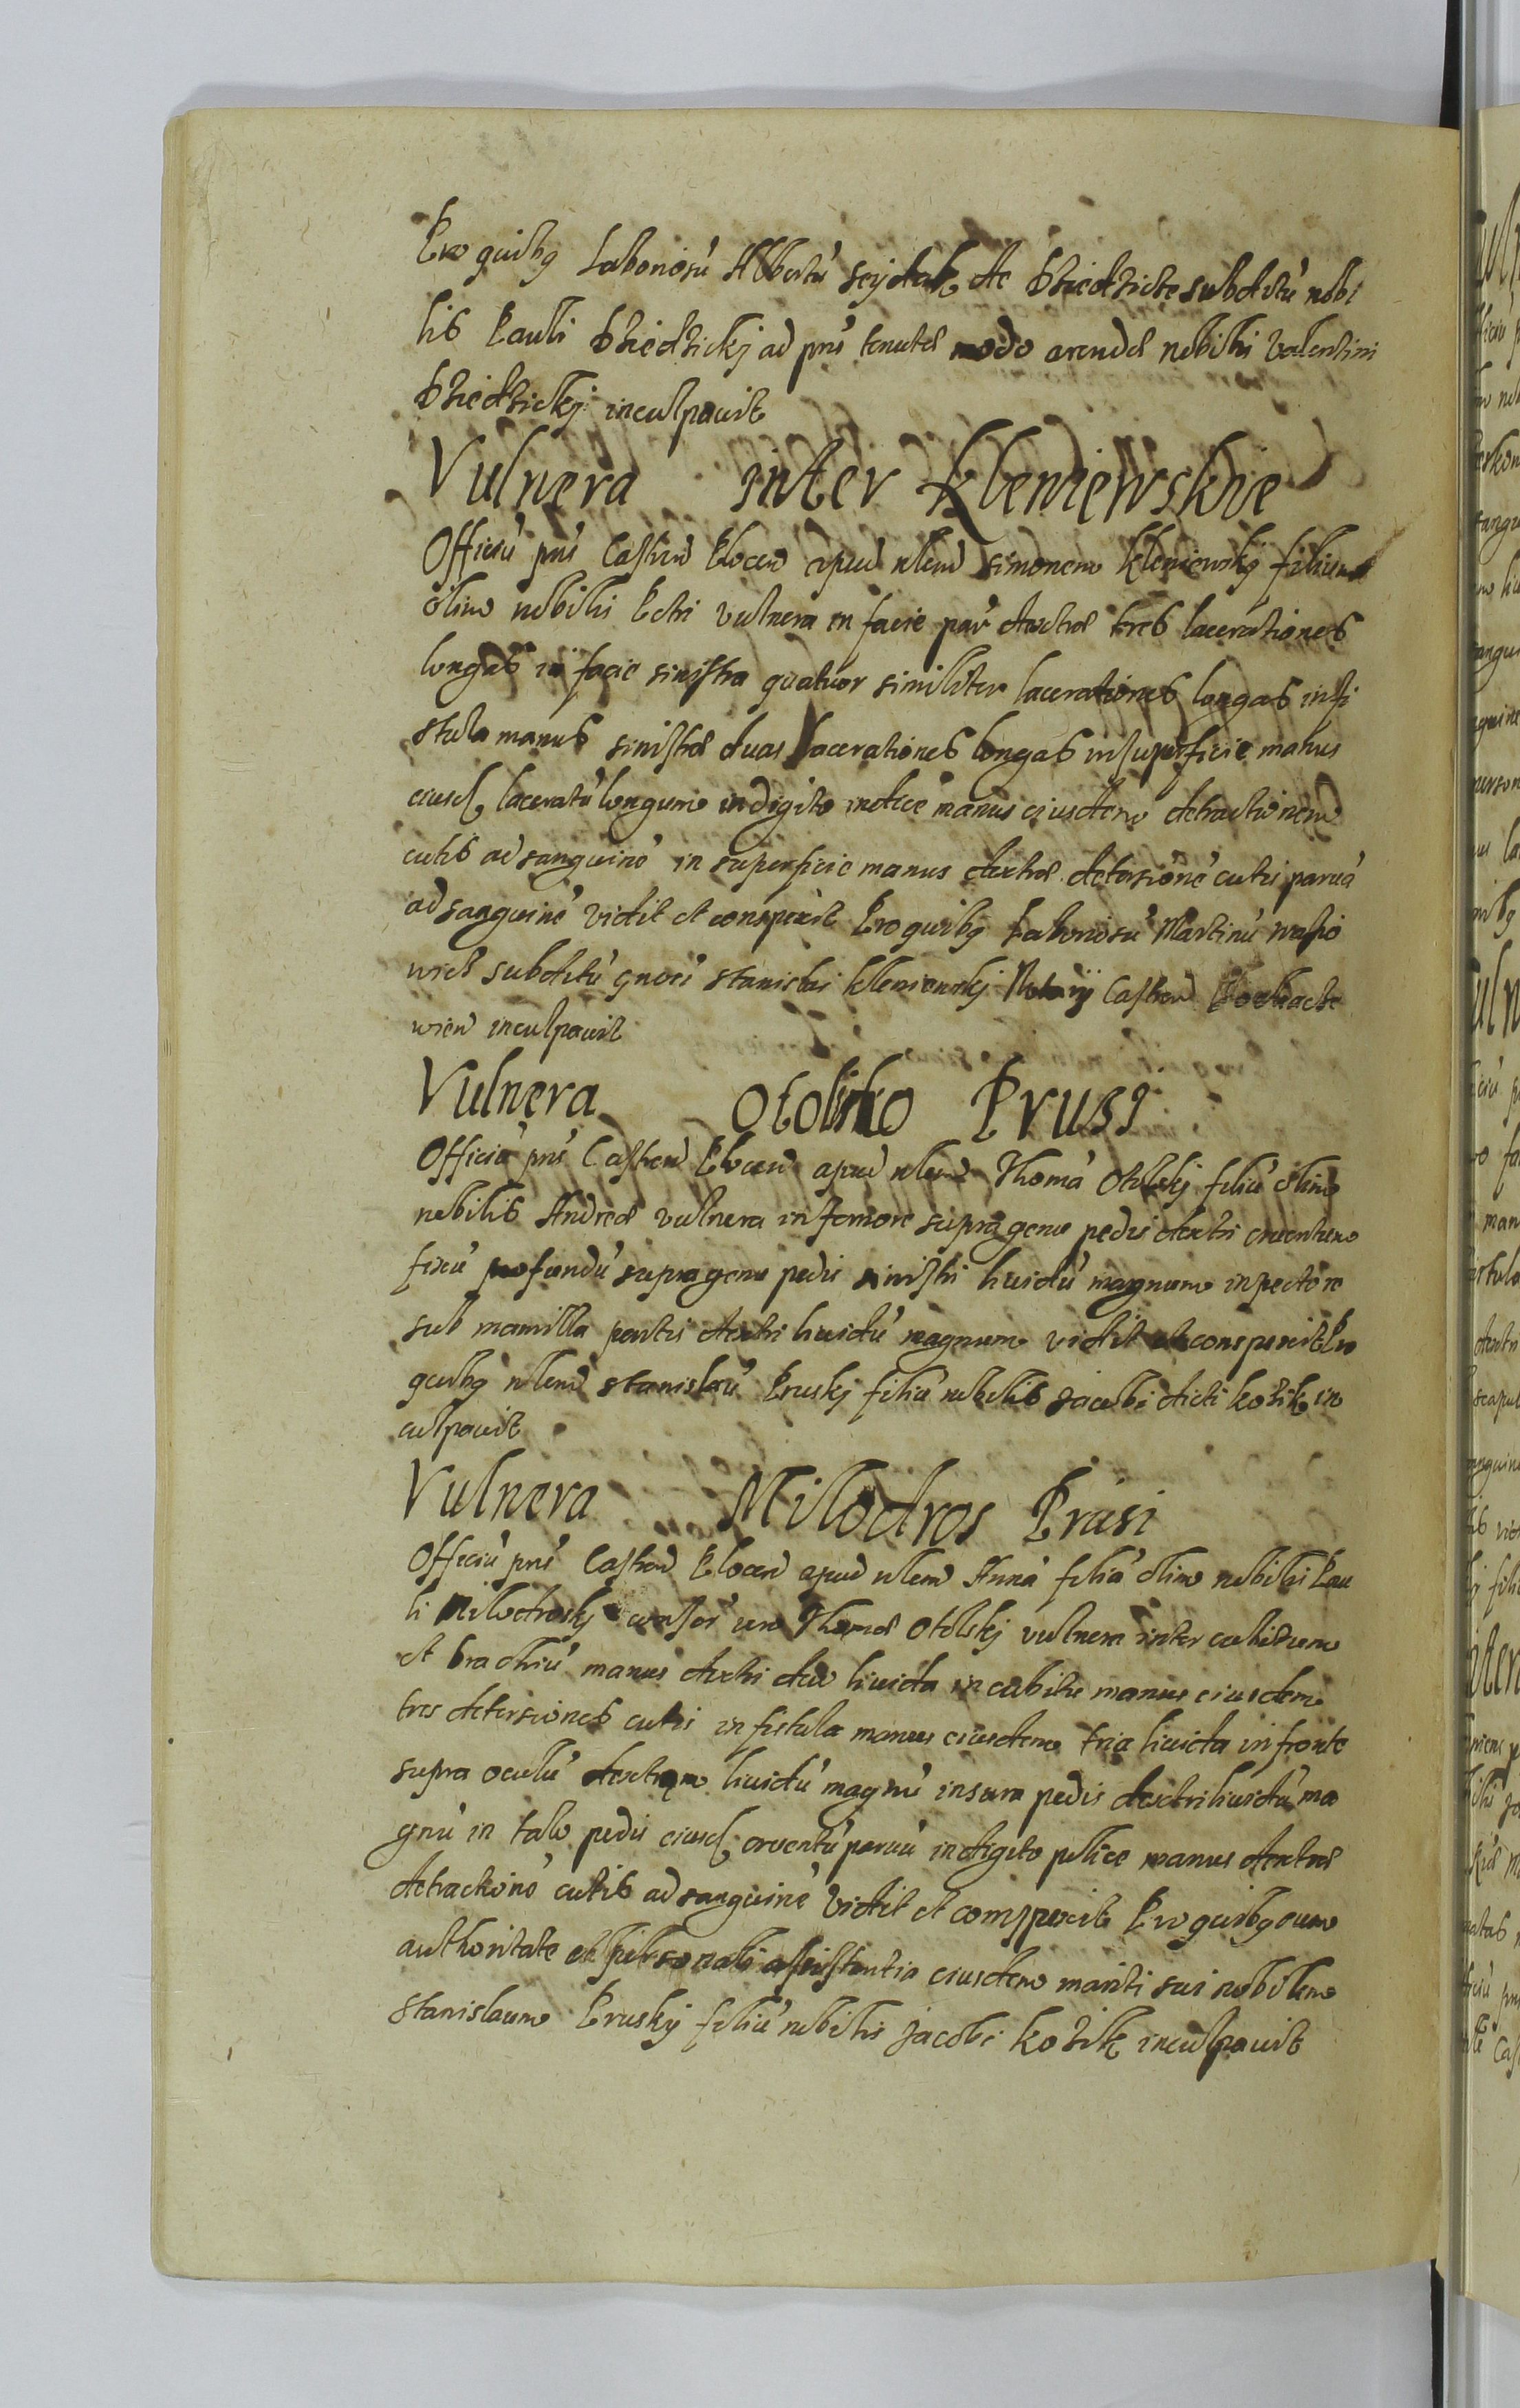 Pro quibq Laboriosu Albertu Seydak de Dziedzicze subditu nobi
lis Pauli Dziedzickj ad pns tenutæ modo arendæ nobilis Valentini
Dziedzickj inculpauit
Vulnera inter Kleniewskie
Officiu pns Castren Plocen apud nlem Simonem Kleniewskj filium
olim nobilis Petri vulnera in facie par dextræ tres lacerationes
longas in facie sinistra quatuor similiter lacerationes longas in fi
stula manus sinistræ duas lacerationes longas in superficie manus
eiusd laceratu longum in digito indice manus eiusdem detractionem
cutis ad sanguine in superficie manus dextræ detersione cutis parua
ad sanguine vidit et conspexit Pro quibq Laboriosu Martinu
subditu gnosi Stanislai Kleniewskj Notarij Castren
wien inculpauit
Vulnera Otolsko Prusi
Officiu pns Castren Plocen apud nlem Thoma Otolskj filiu olim
nobilis Andreæ vulnera in femore supra genu pedis dextri cruentum
fixu profundu supra genu pedis sinistri liuidu magnum in pectore
sub mamilla partis dextri liuidu magnum vidit et conspexit Pro
quibq nlem Stanislau Pruskj filiu nobilis Jacobi dicti Kozik in
culpauit
Vulnera Milodros Prusi
Officiu pns Castren Plocen apud nlem Anna filia olim nobilis Pau
li Milodroskj consor uero Thomæ Otolskj vulnera inter cubitum
et brachiu manus dextri duo liuida in cubitu manus eiusdem
tres detersiones cutis in fistula manus eiusdem tria liuida in fronte
supra oculu dextrum liuidu magnu in sura pedis dextri liuidu ma
gnu in talo pedis eiusd cruentu paruu in digito pollice manus dextræ
detractione cutis ad sanguine vidit et conspexit Pro quibq cum
authoritate et personali assistentia eiusdem mariti sui nobilem
Stanislaum Pruskij filiu nobilis Jacobi Kozik inculpauit